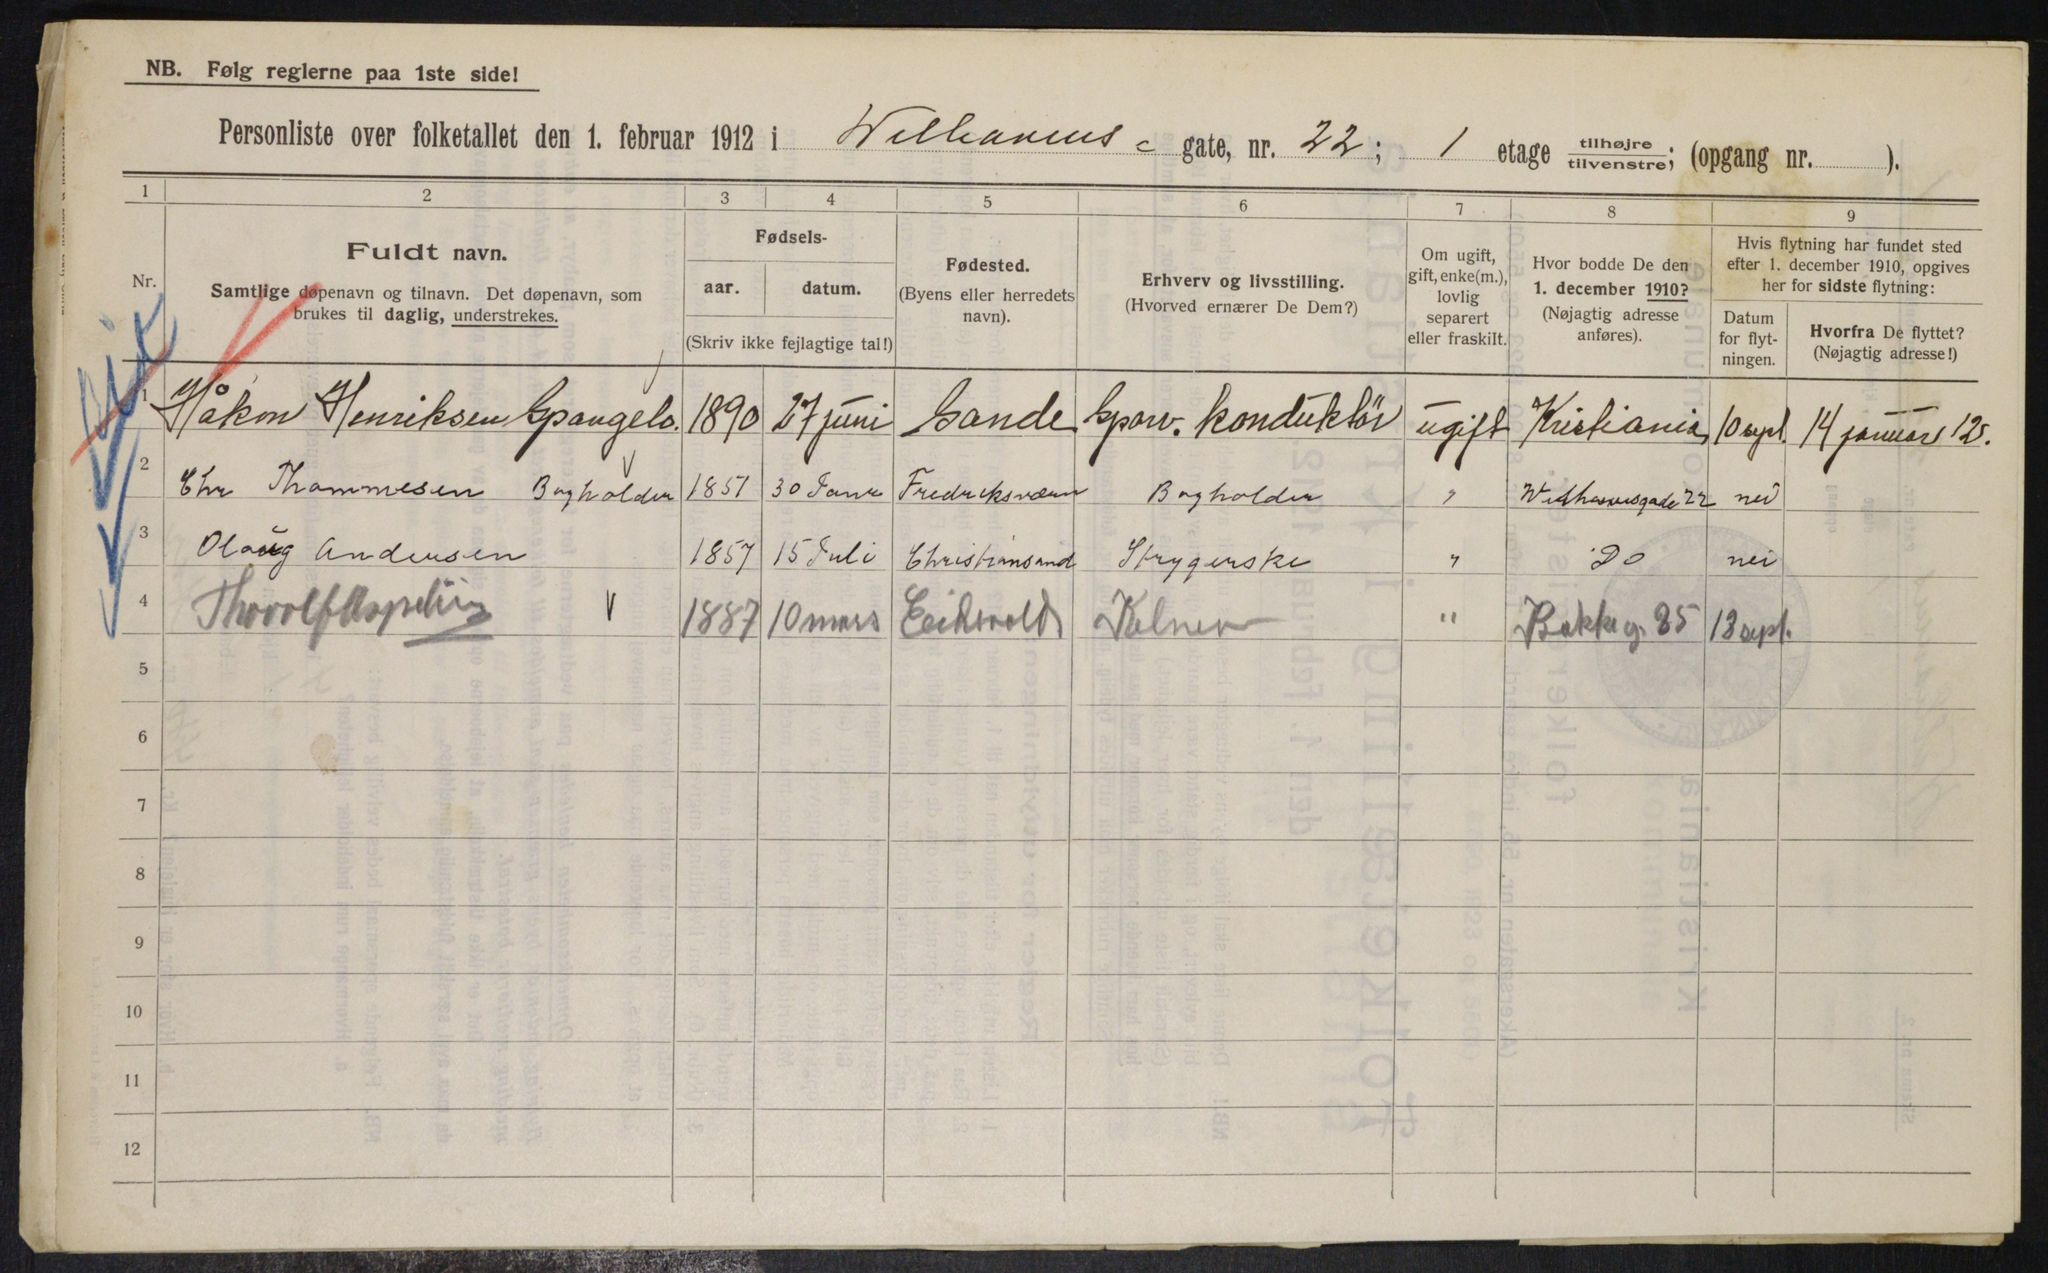 NB. Følg reglerne paa 1ste side!
Personliste over folketallet den 1. februar 1912 i Welhavens - gate, nr. 22; 1 etage tilhøjre tilvenstre; (opgang nr. ).
1 2 3 4 5 6 7 8 9
Nr.
Fuldt navn.
Samtlige døpenavn og tilnavn. Det døpenavn, som
brukes til daglig, understrekes.
Fødsels-
aar. datum.
(Skriv ikke fejlagtige tal!)
Fødested.
(Byens eller herredets
navn).
Erhverv og livsstilling.
(Hvorved ernærer De Dem?)
Om ugift,
gift, enke(m.),
lovlig
separert
eller fraskilt.
Hvor bodde De den
1. december 1910?
(Nøjagtig adresse
anføres).
Hvis flytning har fundet sted
efter 1. december 1910, opgives
her for sidste flytning:
Datum
for flyt-
ningen.
Hvorfra De flyttet?
(Nøjagtig adresse!)
1 Håkon Henriksen Spangelo. 1890 27 juni Sande Sporv. konduktör ugift Kristiania 10 sept. 14 januar 12.
2 Chr Thommesen Bogholder 1857 30 Janr Fredriksværn Bogholder " Welhavensgade 22 nei
3 Olaug Andersen 1857 15 Juli Christiansand Strygerske " Do nei
4 Thorolf 1887 10 mars Eidsvold Kelner " Bakkeg. 85 13 sept.
5
6
7
8
9
10
11
12